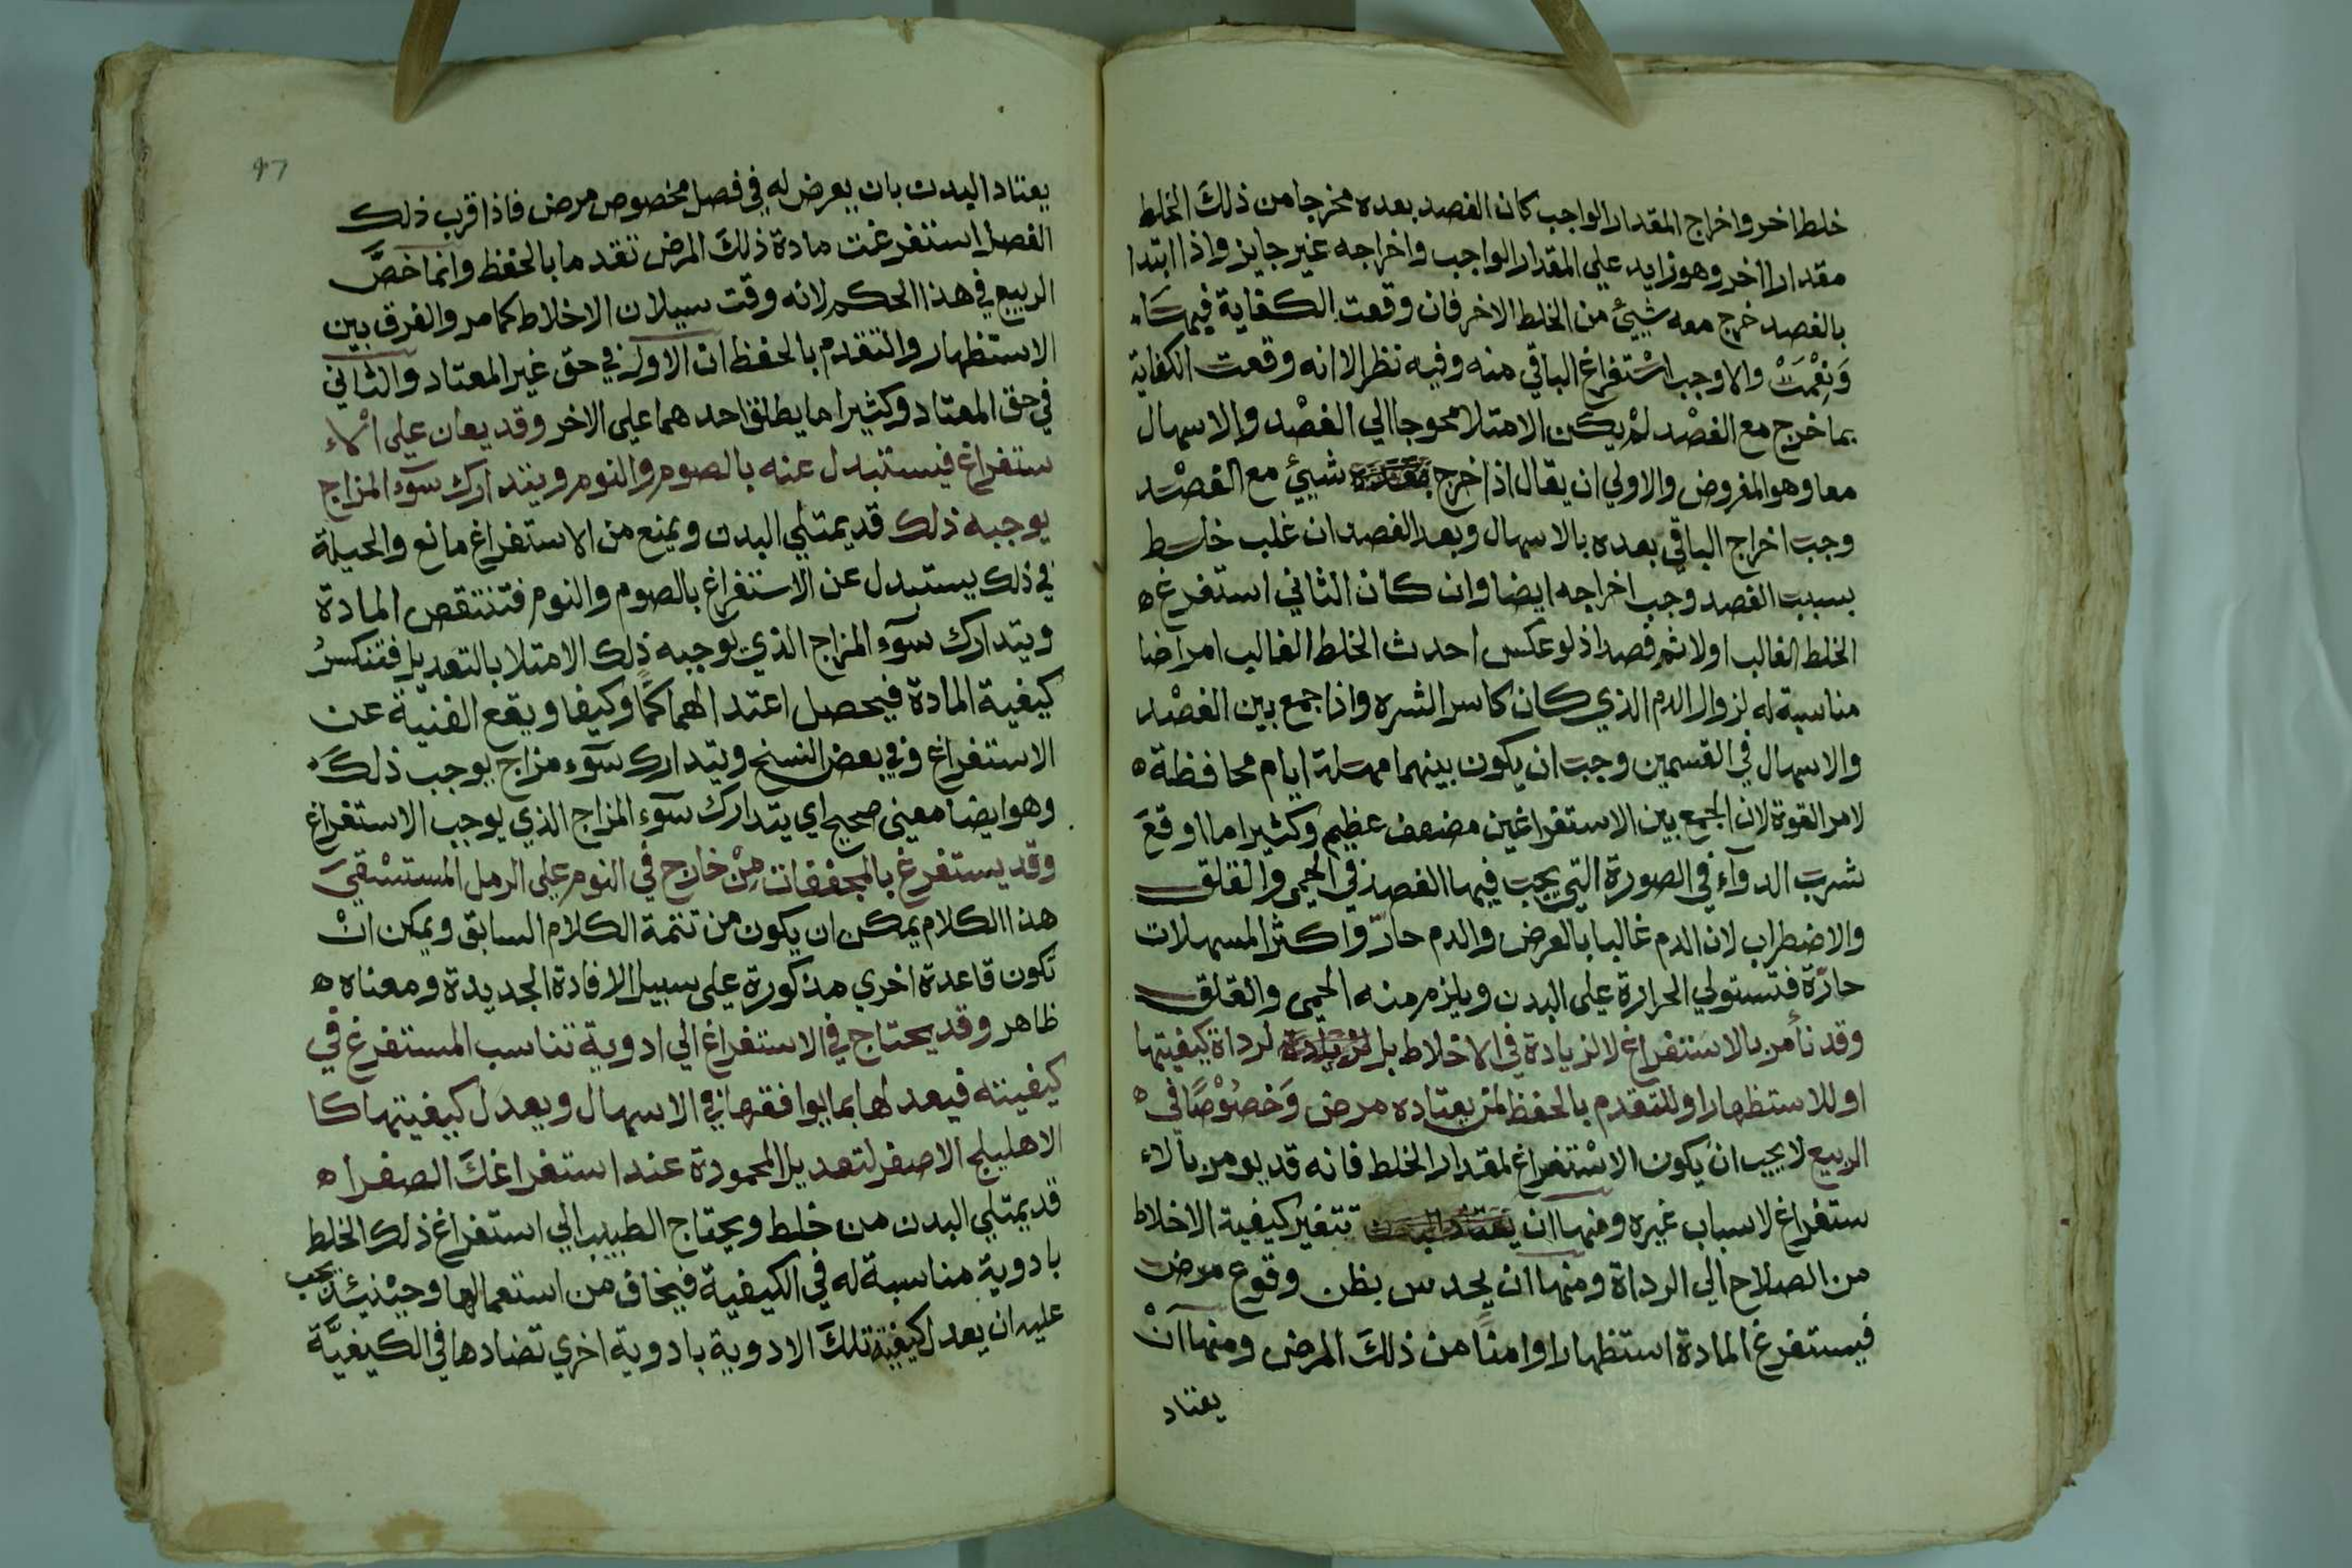 خلط اخر واخراج المقدار الواجب كان الفصد بعده مخرجا من ذلك الخلط
مقدارا اخر وهو زايد علي المقدار الواجب واخراجه غير جايز واذا ابتدا
بالفصد خرج معه شيئ من الخلط الاخر فان وقعت الكفاية فيها
وَنِعْمَتْ والا وجب استفراغ الباقي منه وفيه نظر الا انه وقعت الكفاية
بما خرج مع الفصْد لم يكن الامتلا محوجا الي الفصْد والاسهال
معا وهو المفروض والاولي ان يقال اذا خرج شيئ مع الفصْد
وجب اخراج الباقي بعده بالاسهال وبعد الفصد ان غلب خلط
بسبب الفصد وجب اخراجه ايضا وان كان الثاني استفرغ ه
الخلط الغالب اولا ثم فصد اذ لو عكس احدث الخلط الغالب امراضا
مناسبة له لزوال الدم الذي كان كاسر الشره واذا جمع بين الفصْد
والاسهال في القسمين وجب ان يكون بينهما مهلة ايام محافظة ه
لامر القوة لان الجمع بين الاستفراغين مضعف عظيم وكثيرا ما اوقع
شرب الدوآء في الصورة التي يجب فيها الفصد في الحمي والقلق
والاضطراب لان الدم غالبا بالعرض والدم حارّ واكثر المسهلات
حارّة فتستولي الحرارة علي البدن ويلزم منه الحمي والقلق
وقد نأمر بالاستفراغ لا لزيادة في الاخلاط بل لرداة كيفيتها
او للاستظهار او للتقدم بالحفظ لمن يعتاده مرض وَخصُوْصًا في ه
الربيع لا يجب ان يكون الاسْتفراغ لمقدار الخلط فانه قد يومر بالا
ستفراغ لاسباب غيره ومنها ان تتغير كيفية الاخلاط
من الصلاح الي الرداة ومنها ان يحدس بظن وقوع مرض
فيستفرغ المادة استظهارا وامنًا من ذلك المرض ومنها انْ
يعتاد
٩٦
يعتاد البدن بان يعرض له في فصل مخصوص مرض فاذا قرب ذلك
الفصل استفرغت مادة ذلك المرض تقدما بالحفظ وانما خصَّ
الربيع في هذا الحكم لانه وقت سيلان الاخلاط كما مر والفرق بين
الاستظهار والتقدم بالحفظ ان الاول في حق غير المعتاد والثاني
في حق المعتاد وكثيرا ما يطلق احدهما علي الاخر وقد يعان علي الا
ستفراغ فيستبدل عنه بالصوم والنوم ويتدارك سوء المزاج
يوجبه ذلك قد يمتلي البدن ويمنع من الاستفراغ مانع والحيلة
في ذلك يستبدل عن الاستفراغ بالصوم والنوم فتنتقص المادة
ويتدارك سوء المزاج الذي يوجبه ذلك الامتلا بالتعديل فتنكسرُ
كيفية المادة فيحصل اعتدالهما كمًّا وكيفا ويقع الغنية عن
الاستفراغ وفي بعض النسخ ويتدارك سوء مزاج يوجب ذلك
وهو ايضا معني صحيح اي يتدارك سوء المزاج الذي يوجب الاستفراغ
وقد يستفرغ بالمجففات مِنْ خارج في النوم علي الرمل المستسْقي
هذا الكلام يمكن ان يكون من تتمة الكلام السابق ويمكن انْ
تكون قاعدة اخري مذكورة علي سبيل الافادة الجديدة ومعناه ه
ظاهر وقد يحتاج في الاستفراغ الي ادوية تناسب المستفرغ في
كيفيته فيعد لها بما يوافقها في الاسهال ويعدل كيفيتها كا
الاهليلج الاصفر لتعديل المحمودة عند استفراغك الصفرا ه
قد يمتلي البدن من خلط ويحتاج الطبيب الي استفراغ ذلك الخلط
بادوية مناسبة له في الكيفية فيخاف من استعمالها وحينئذ يجب
عليه ان يعدل كيفية تلك الادوية بادوية اخري تضادها في الكيفيَّة